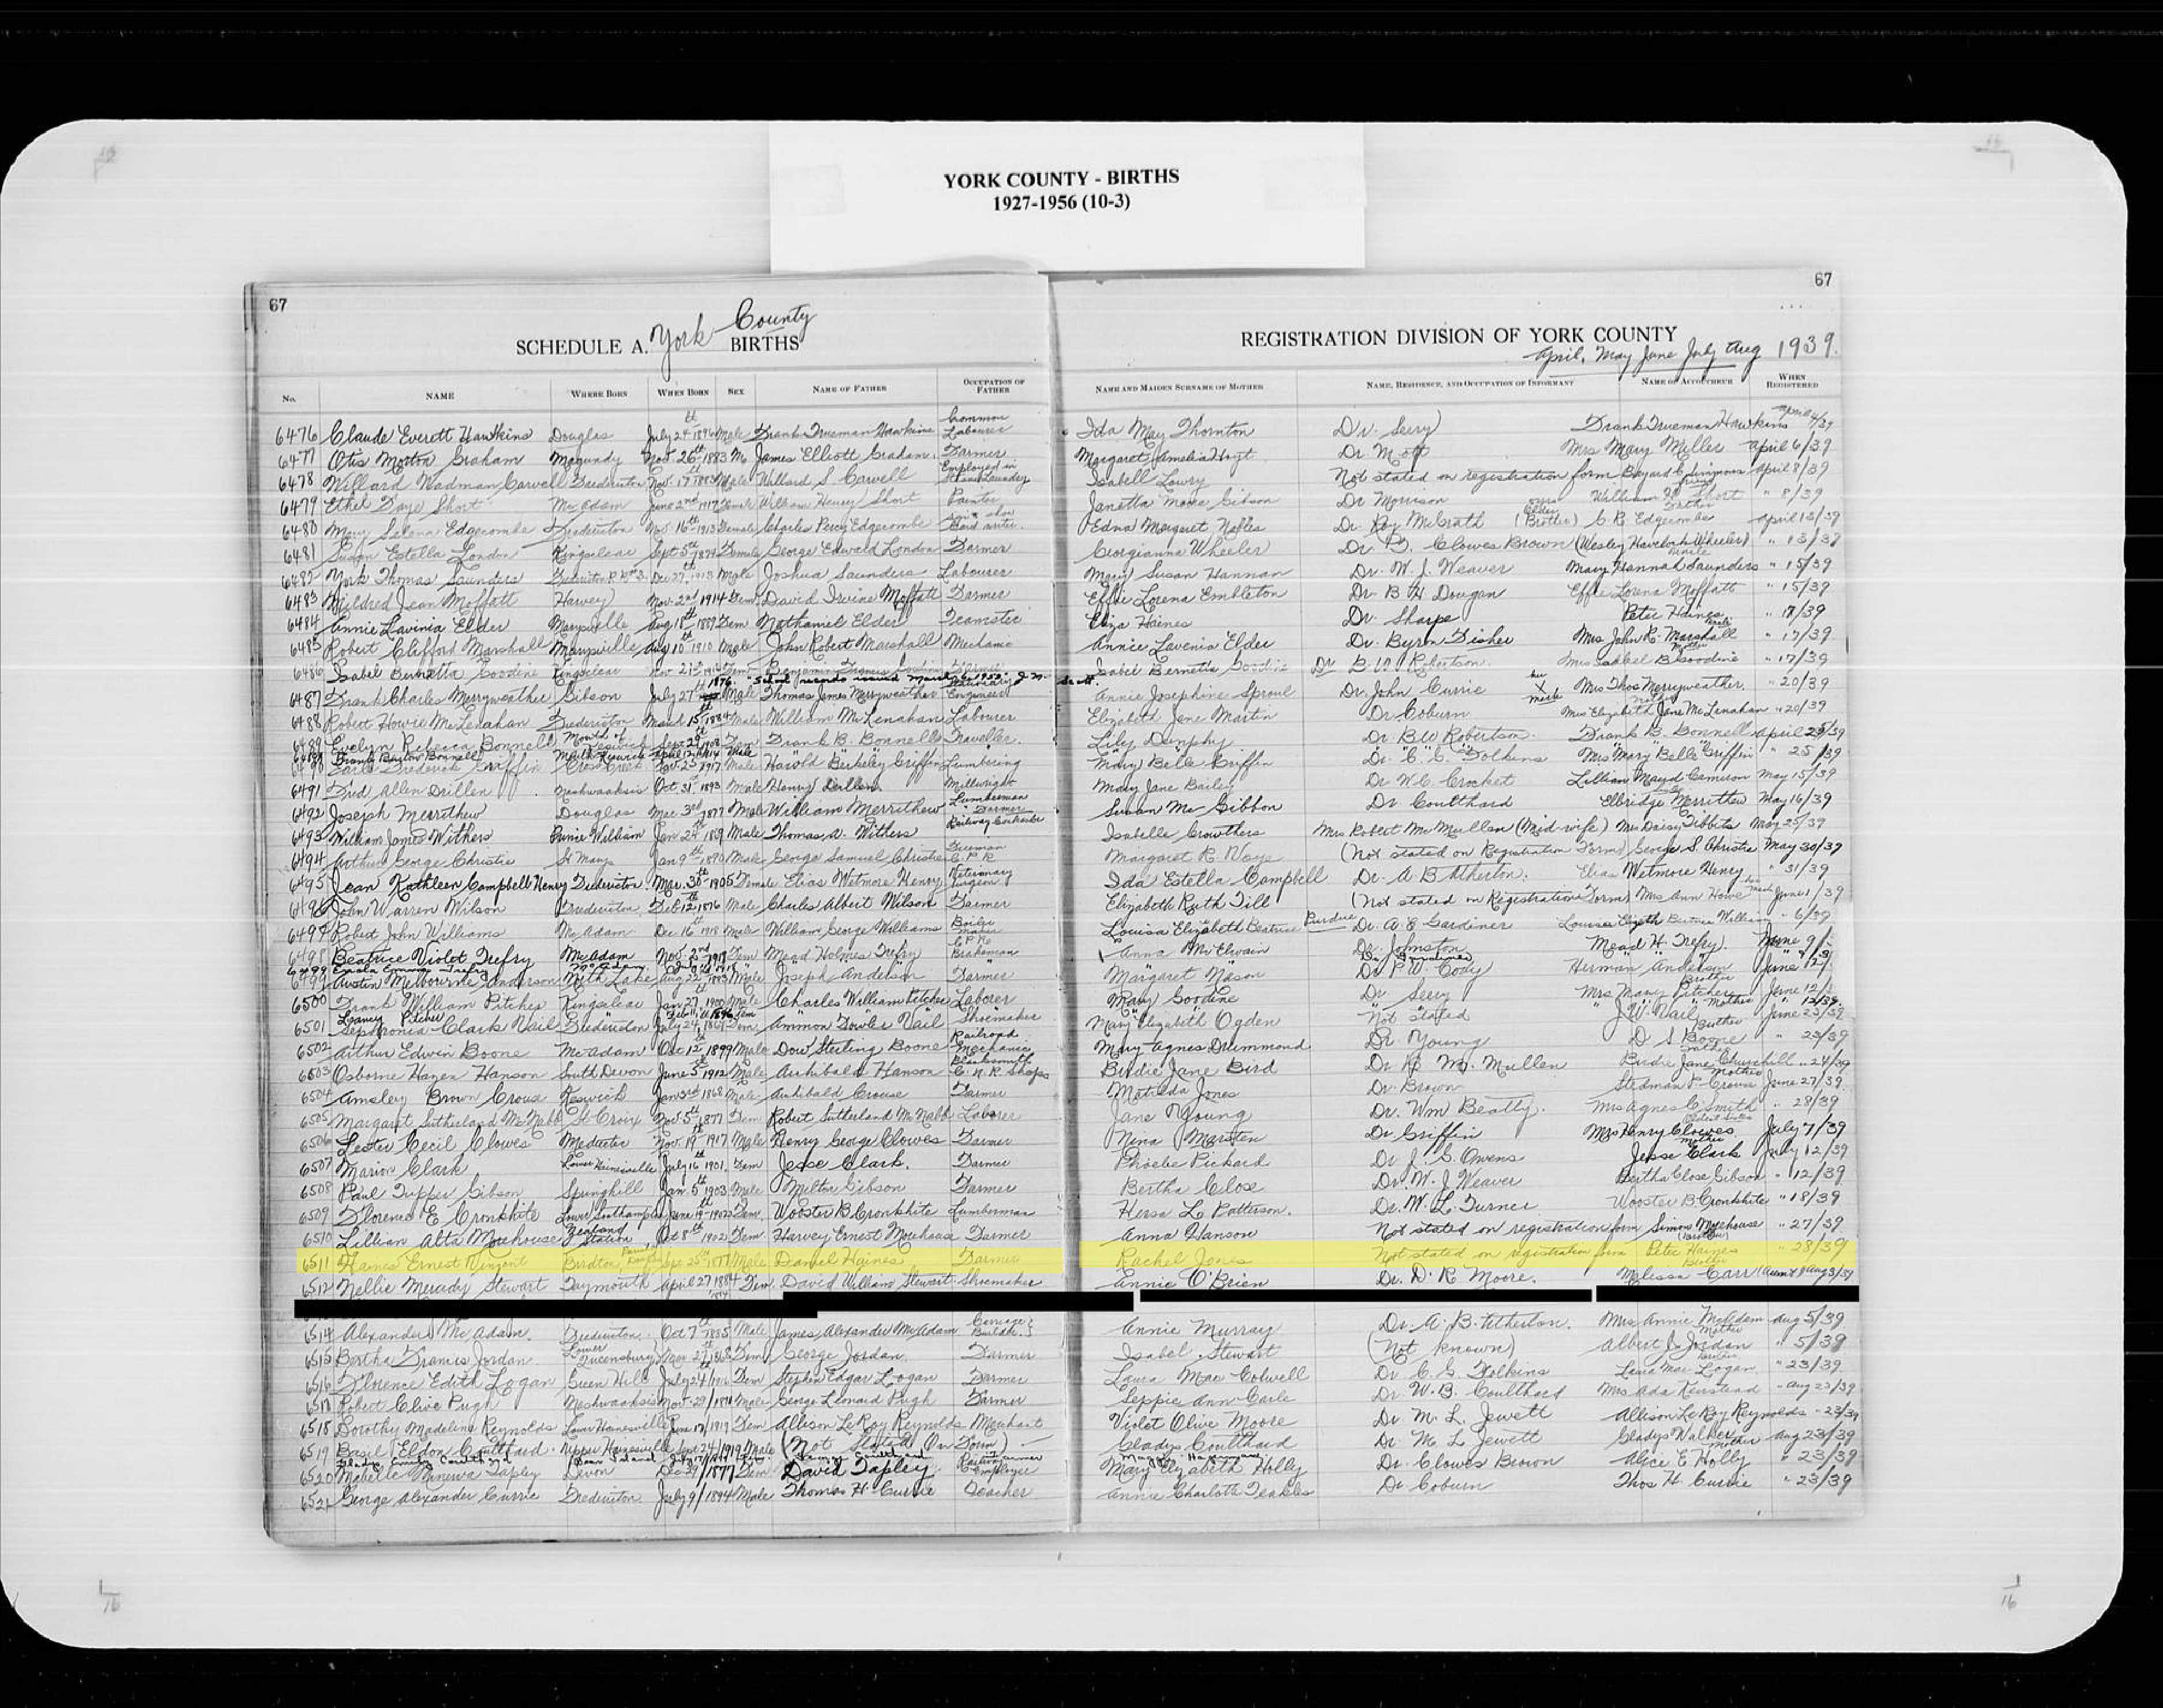 YORK COUNTY - BIRTHS
1927-1956 (10-3)
67
67
SCHEDULE A. York County BIRTHS
REGISTRATION DIVISION OF YORK COUNTY
April, May June July Aug 1939.
No. NAME WHERE BORN WHEN BORN SEX NAME OF FATHER OCCUPATION OF FATHER NAME AND MAIDEN SURNAME OF MOTHER NAME, RESIDENCE, AND OCCUPATION OF INFORMANT NAME OF ACCOUCHEUR WHEN REGISTERED
6476 Claude Everett Hawkins Douglas July 24th 1896 Male Frank Trueman Hawkins Common Labourer Ida May Thornton Dr. Seery Frank Trueman Hawkins April 4/39
6477 Otis Morton Graham Magundy Nov. 26th 1883 M. James Elliott Graham Farmer Margaret Amelia Hoyt Dr Mott Mrs Mary Miller April 6/39
6478 Willard Wadman Carvell Fredericton Nov. 17th Male Willard S Carvell Employed in Steam Laundry Isabell Lowry Not stated on registration form Bayard E Simmons friend April 8/39
6479 Ethel Faye Short McAdam June 2nd 1917 Female William Henry Short Painter Janetta Moore Gibson Dr Morrison William H Short Father " 8/39
6480 Mary Selena Edgecombe Fredericton Nov. 16th 1913 Female Charles Percy Edgecombe Edna Margaret Nelles Dr Roy McGrath (Brother) C. P. Edgecombe April 13/39
6481 Susan Estella London Kingsclear Sept 5th Female George Edward London Farmer Georgianna Wheeler Dr. B. Clowes Brown (Wesley Havelock Wheeler) Uncle " 13/39
6482 York Thomas Saunders Dec 27th 1913 Male Joshua Saunders Labourer Mary Susan Hannan Dr. W. J. Weaver Mary Hannah Saunders " 15/39
6483 Mildred Jean Moffatt Harvey Nov. 2nd 1914 Fem. David Irvine Moffatt Farmer Effie Lorena Embleton Dr B H Dougan Effie Lorena Moffatt " 15/39
6484 Annie Lavinia Elder Marysville Aug 18th 1889 Fem Nathaniel Elder Teamster Eliza Haines Dr. Sharpe Peter Haines Uncle " 17/39
6485 Robert Clifford Marshall Marysville Aug 10th 1910 Male John Robert Marshall Mechanic Annice Lavenia Elder Dr. Byron Fisher Mrs John R. Marshall Mother " 17/39
6486 Isabel Burnetta Goodine Kingsclear Fem. Benjamin Francis Goodine Farmer Isabel Bernetta Goodine Dr B. W. Robertson. Mrs Isabel B Goodine " 17/39
School records issued March 6, 1950
6487 Frank Charles Merryweather Gibson July 27th 1876 Male Thomas James Merryweather Engineer Annie Josephine Sproul Dr. John Currie her X mark Mrs Thos Merryweather. mother " 20/39
6488 Robert Howie McLenahan Fredericton March 15th 1884 Male William McLenahan Labourer Elizabeth Jane Martin Dr Coburn Mrs Elizabeth Jane McLenahan " 20/39
6489 Evelyn Rebecca Bonnell Mouth of Keswick Sept 29th 1908 Fem Frank B. Bonnell Traveller. Lily Dunphy Dr B W Robertson. Frank B. Bonnell April 25/39
6489 Frank Barlow Bonnell Mouth Keswick Male " " " " " " "
6490 Earle Frederick Griffin Cross Creek Nov. 23rd 1917 Male Harold Berkeley Griffin Lumbering Mary Belle Griffin Dr. C. S. Folkins Mrs Mary Belle Griffin " 25/39
6491 Fred Allen Drillen Nashwaaksis Oct 31st 1893 Male Henry Drillen Millwright Mary Jane Bailey Dr W. C. Crocket Lillian Maud Cameron May 15/39
6492 Joseph Merrithew Douglas Mar 3rd 1877 Male William Merrithew Lumberman Farmer Susan McGibbon Dr Coulthard Elbridge Merrithew May 16/39
6493 William James Withers Prince William Jan 24th 1889 Male Thomas A. Withers Railway Contractor Isabelle Crowthers Mrs Robert McMullen (Mid-wife) Mrs Daisy Tibbits May 25/39
6494 Arthur George Christie St Marys Jan 9th 1890 Male George Samuel Christie Foreman C. P. R Margaret R. Naye (Not stated on Registration Form) George S. Christie May 30/39
6495 Jean Kathleen Campbell Henry Fredericton Mar. 30th 1905 Female Elias Wetmore Henry Veterinary Surgeon Ida Estella Campbell Dr. A B Atherton. Elias Wetmore Henry " 31/39
6496 John Warren Wilson Fredericton Feb 12th 1876 Male Charles Albert Wilson Farmer Elizabeth Ruth Till (Not stated on Registration Form) Mrs Ann Howe June 1/39
6497 Robert John Williams McAdam Dec 16th 1918 Male William George Williams Boiler maker Louisa Elizabeth Beatrice Purdue Dr. A. E Gardiner Louisa Elizabeth Beatrice Williams " 6/39
6498 Beatrice Violet Trefry McAdam Nov. 2nd Fem Mead Holmes Trefry C P R Brakeman Anna McElwain Dr. Johnston Mead H. Trefry June 9
6499 Austin Melbourne Anderson Lake Aug 22nd 1883 Male Joseph Anderson Farmer Margaret Mason Dr P. W. Cody Herman Anderson Brother June 12
6500 Frank William Pitcher Kingsclear Jan 27 1900 Male Charles William Pitcher Laborer Mary Goodine Dr. Seery Mrs Mary Pitcher Mother June 12
6501 Sephronia Clark Vail Fredericton July 24 Fem. Ammon Fowler Vail Shoemaker Mary Elizabeth Ogden Not stated J. W. Vail Brother June 23/39
6502 Arthur Edwin Boone McAdam Oct 12th 1899 Male Dow Sterling Boone Railroad Mechanic Mary Agnes Drummond Dr. Young D S Boone Father " 23/39
6503 Osborne Hazen Hanson South Devon June 5th 1912 Male Archibald Hanson Blacksmith C. N. R Shops Birdie Jane Bird Dr R. McMullen Birdie Jane Churchill Mother " 24/39
6504 Amsley Brown Crouse Keswick Jan 3rd 1868 Male Archibald Crouse Farmer Matilda Jones Dr Brown Stedman P Crouse June 27/39
6505 Margaret Sutherland McNabb St Croix Nov 5th 1877 Fem Robert Sutherland McNabb Laborer Jane Young Dr. Wm Beatty. Mrs Agnes C Smith " 28/39
6506 Lester Cecil Clowes Meductic Nov. 19th 1917 Male Henry George Clowes Farmer Nina Marsten Dr Griffin Mrs Henry Clowes Mother July 7/39
6507 Marion Clark Lower Hainesville July 16th 1901 Fem Jesse Clark. Farmer Phoebe Pickard Dr J. G. Owens Jesse Clark July 12/39
6508 Paul Tupper Gibson Springhill Jan. 5th 1903 Male Milton Gibson Farmer Bertha Close Dr. W. J Weaver Bertha Close Gibson " 12/39
6509 Florence E Cronkhite Lower Southampton June 19th 1902 Fem. Wooster B Cronkhite Lumberman Herse L Patterson. Dr. W. L. Turner Wooster B Cronkhite " 18/39
6510 Lillian Alta Morehouse Zealand Station Oct 8th 1902 Fem. Harvey Ernest Morehouse Farmer Anna Hanson Not stated on registration form Simon Morehouse (Brother) " 27/39
6511 Haines Ernest Vincent Birdton, Parish Douglas Sept 25th 1877 Male Daniel Haines Farmer Rachel Jones Not stated on registration form Peter Haines Brother " 28/39
6512 Nellie Meredy Stewart Taymouth April 27 1884 Fem. David William Stewart Shoemaker Annie O'Brien Dr. D. R Moore. Melissa Carr (Aunt) Aug 3/39
6514 Alexander McAdam. Fredericton Oct 7th 1885 Male James Alexander McAdam Carriage Builder Annie Murray Dr A. B. Atherton. Mrs Annie McAdam Mother Aug 5/39
6515 Bertha Francis Jordan Lower Queensbury Mar 27th 1868 Fem George Jordan Farmer Isabel Stewart (Not known) Albert J Jordan " 5/39
6516 Florence Edith Logan Green Hill July 24 Fem Stephen Edgar Logan Farmer Laura Mae Colwell Dr C. S. Folkins Laura Mae Logan " 23/39
6517 Robert Clive Pugh Nashwaaksis Nov. 29 Male George Leonard Pugh Farmer Seppie Ann Carle Dr. W. B. Coulthard Mrs Ada Kierstead " Aug 23/39
6518 Dorothy Madeline Reynolds Lower Hainesville June 17/1919 Fem Allison LeRoy Reynolds Merchant Violet Olive Moore Dr M. L. Jewett Allison LeRoy Reynolds " 23/39
6519 Basil Eldon Coulthard Upper Hainesville Sept 24/1919 Male (Not Stated On Form) Gladys Coulthard Dr. M. L Jewett Gladys Walker Mother Aug 23/39
6520 Mabelle Minerva Tapley Devon Dec 29/1877 Fem. David Tapley Railway Employee Mary Elizabeth Holly Dr. Clowes Brown Alice E Holly " 23/39
6521 George Alexander Currie Fredericton July 9/1894 Male Thomas H. Currie Teacher Annie Charlotte Teakles Dr Coburn Thos H. Currie " 23/39